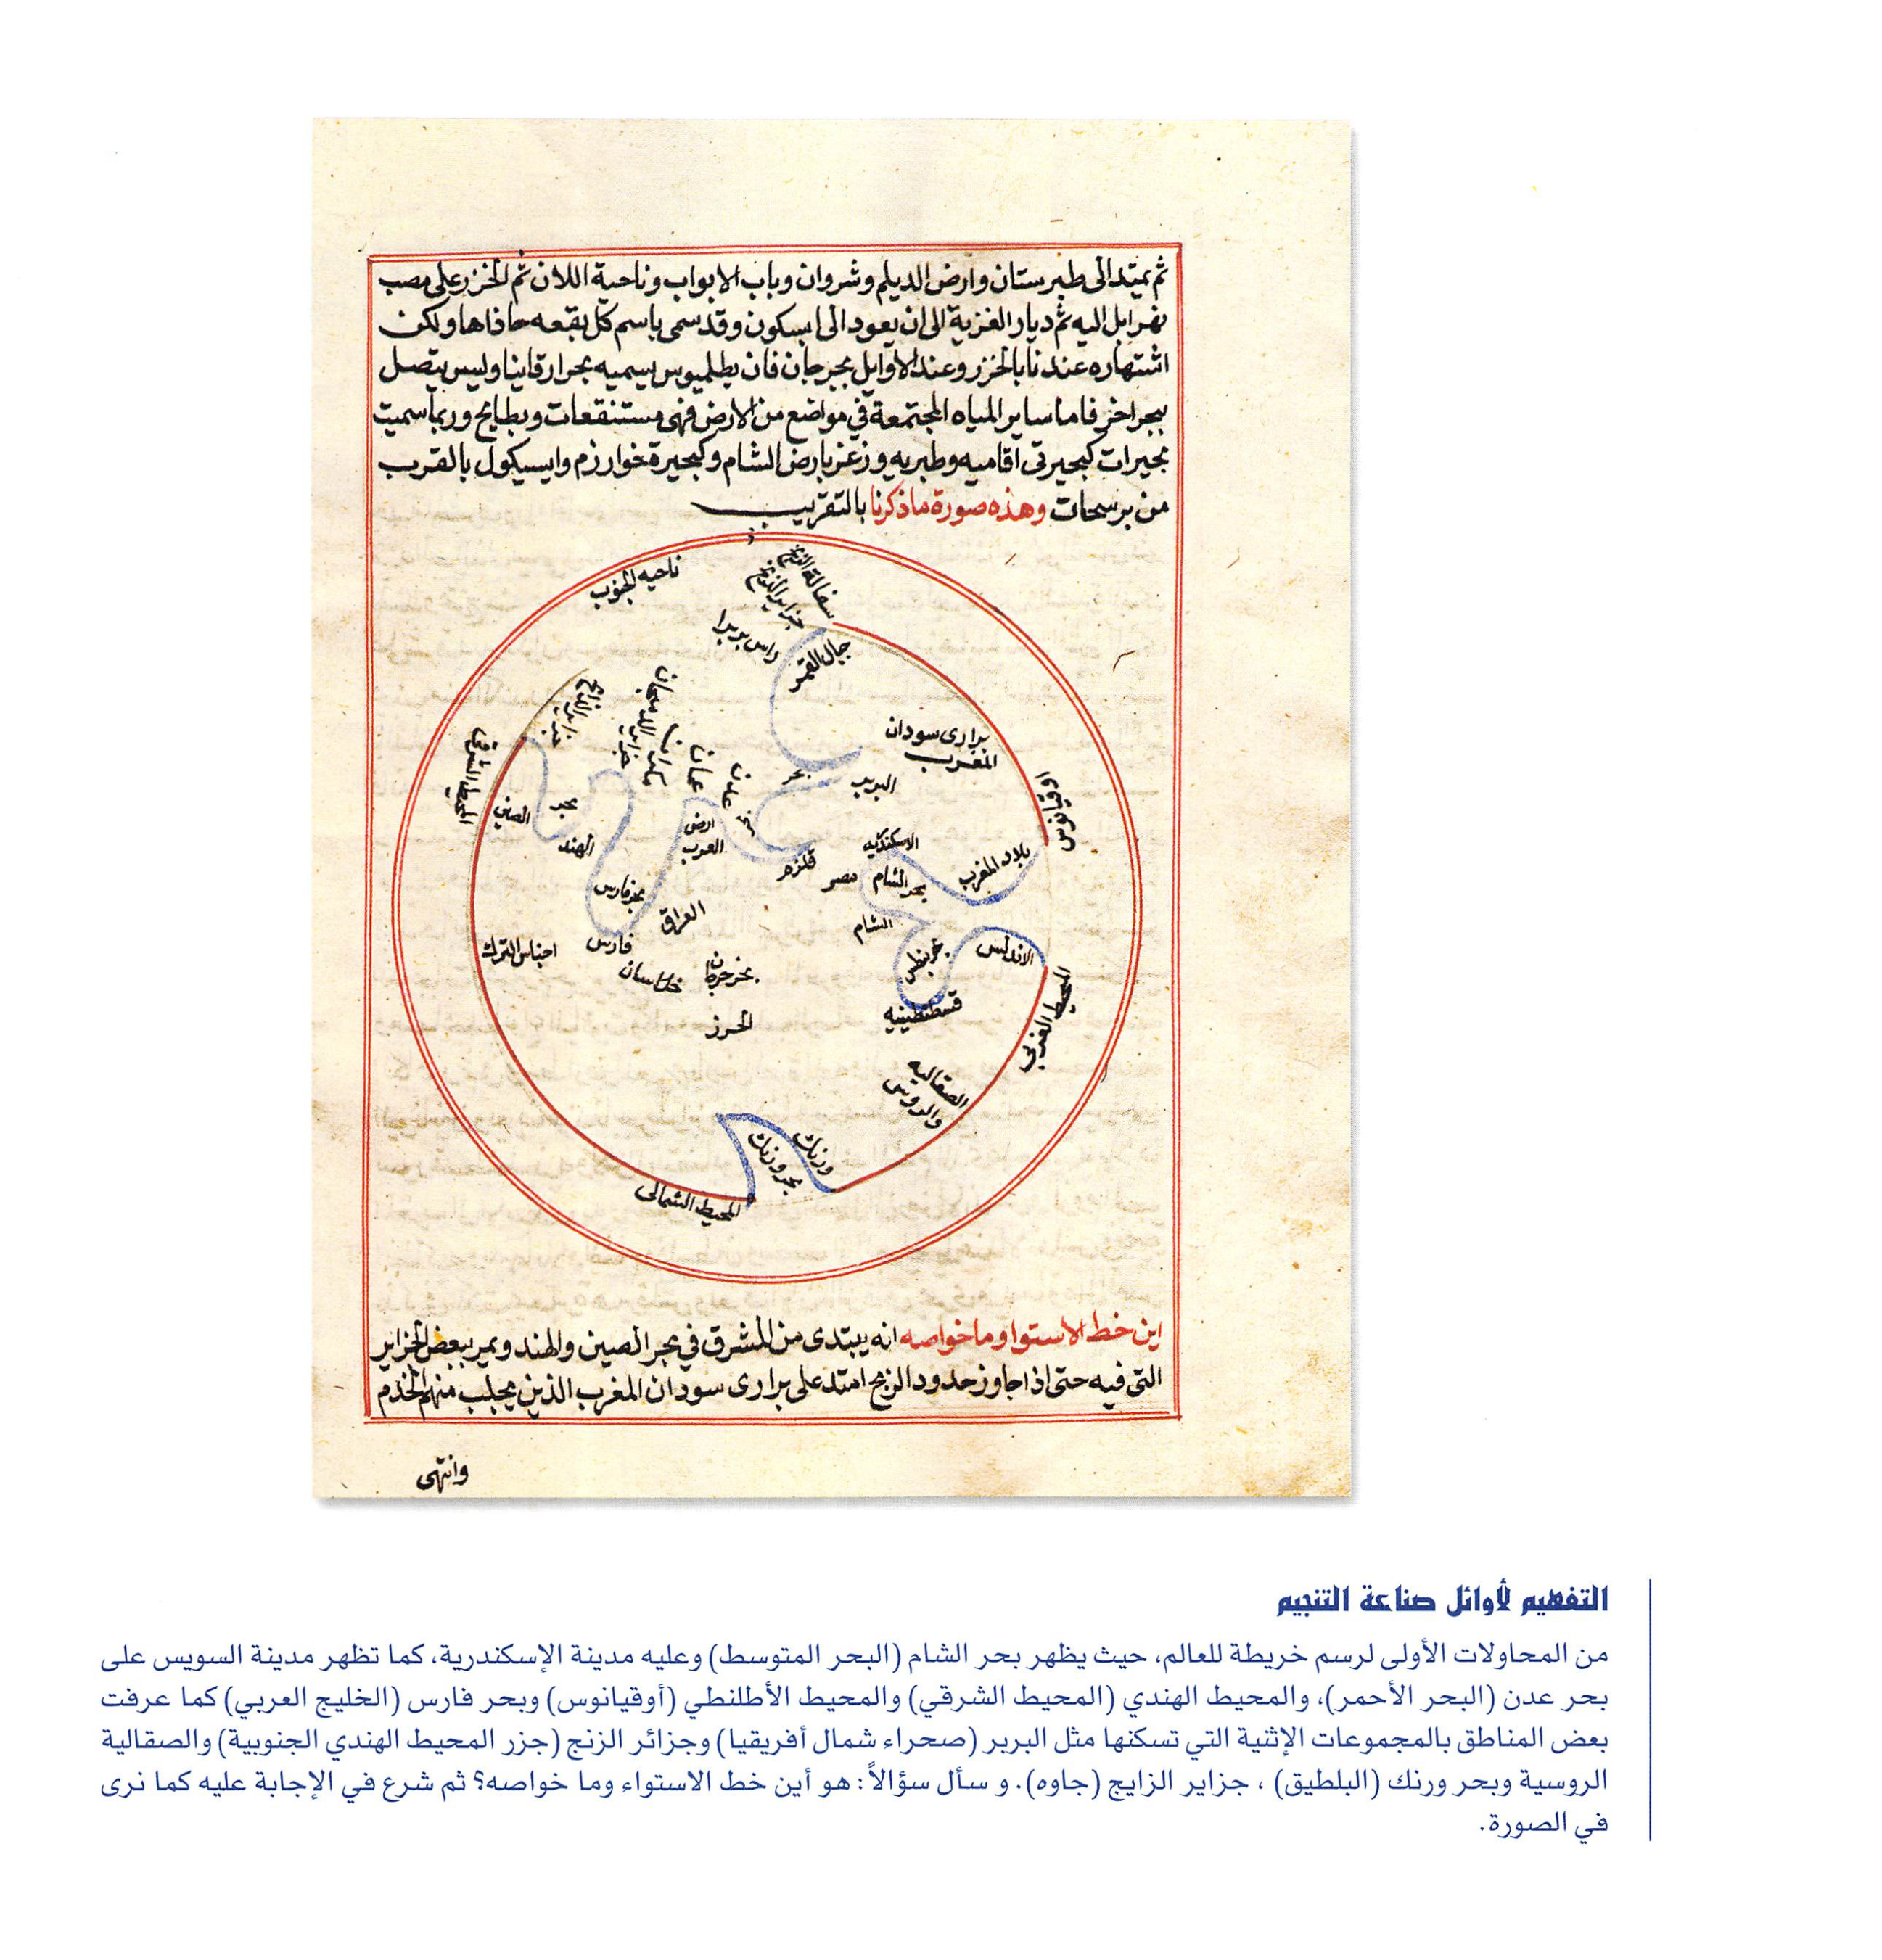 ثم يمتد الى طبرستان وارض الديلم وشروان وباب الابواب وناحية اللان ثم الخزر على مصب
نهر اتل اليه ثم ديار الغزية الى ان يعود الى ابسكون وقد سمى باسم كل بقعه حاذاها ولكن
اشتهاره عندنا بالخزر وعند الاوايل بجرجان فان بطلميوس يسميه بحر ارقانيا وليس يتصل
ببحر اخر فاما ساير المياه المجتمعة في مواضع من الارض فهى مستنقعات وبطايح وربما سميت
بحيرات كبحيرتى اقاميه وطبريه وزغر بارض الشام وكبحيرة خوارزم وايسيكول بالقرب
من برسخان وهذه صورة ماذكرنا بالتقريب
ناحيه الجنوب
سفالة الزنج
جزاير الزنج
راس بربرا
جبال القمر
جزاير الزابج
جزاير الديبجات
مكران
عمان
عدن
بحر
برارى سودان
المغرب
البربر
اوقيانوس
المحيط الشرقى
الصين
بحر
الهند
ارض
العرب
قلزم
مصر
الاسكندريه
بحر الشام
بلاد المغرب
بحر فارس
العراق
الشام
فارس
خراسان
اجناس الترك
بحر جرجان
الخزر
بحر بنطس
الاندلس
قسطنطينيه
المحيط الغربى
الصقالبه
والروس
ورنك
بحر ورنك
المحيط الشمالى
اين خط الاستوا وما خواصه انه يبتدى من المشرق في بحر الصين والهند ويمر ببعض الجزاير
التى فيه حتى اذا جاوز حدود الزنج امتد على برارى سودان المغرب الذين يجلب منهم الخدم
وانتهى
التفهيم لأوائل صناعة التنجيم
من المحاولات الأولى لرسم خريطة للعالم، حيث يظهر بحر الشام (البحر المتوسط) وعليه مدينة الإسكندرية، كما تظهر مدينة السويس على
بحر عدن (البحر الأحمر)، والمحيط الهندي (المحيط الشرقي) والمحيط الأطلنطي (أوقيانوس) وبحر فارس (الخليج العربي) كما عرفت
بعض المناطق بالمجموعات الإثنية التي تسكنها مثل البربر (صحراء شمال أفريقيا) وجزائر الزنج (جزر المحيط الهندي الجنوبية) والصقالية
الروسية وبحر ورنك (البلطيق) ، جزاير الزايج (جاوه). و سأل سؤالاً: هو أين خط الاستواء وما خواصه؟ ثم شرع في الإجابة عليه كما نرى
في الصورة.